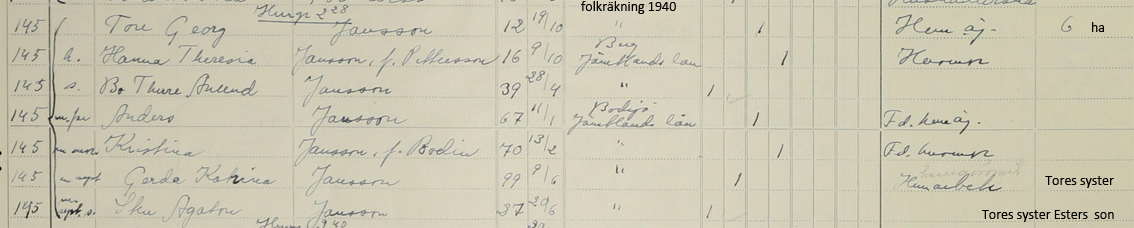 folkräkning 1940
145 Tore Georg Jansson 12 19/10 " 1 Hem.äg. 6 ha
Berg
145 h. Hanna Theresia Jansson, f. Pettersson 16 9/10 Jämtlands län 1
145 s. Bo Thure Anlend Jansson 39 28/4 " 1
Bodsjö
145 m. far Anders Jansson 67 11/1 Jämtlands län 1 Fd. hem.äg.
145 m. mor Kristina Jansson, f. Bodin 70 13/2 " 1 Fd.
145 m syst Gerda Katrina Jansson 99 9/6 " 1 Hemarbete Tores syster
145 m. syst. s. Sten Agaton Jansson 37 29/6 " 1 Tores syster Esters son